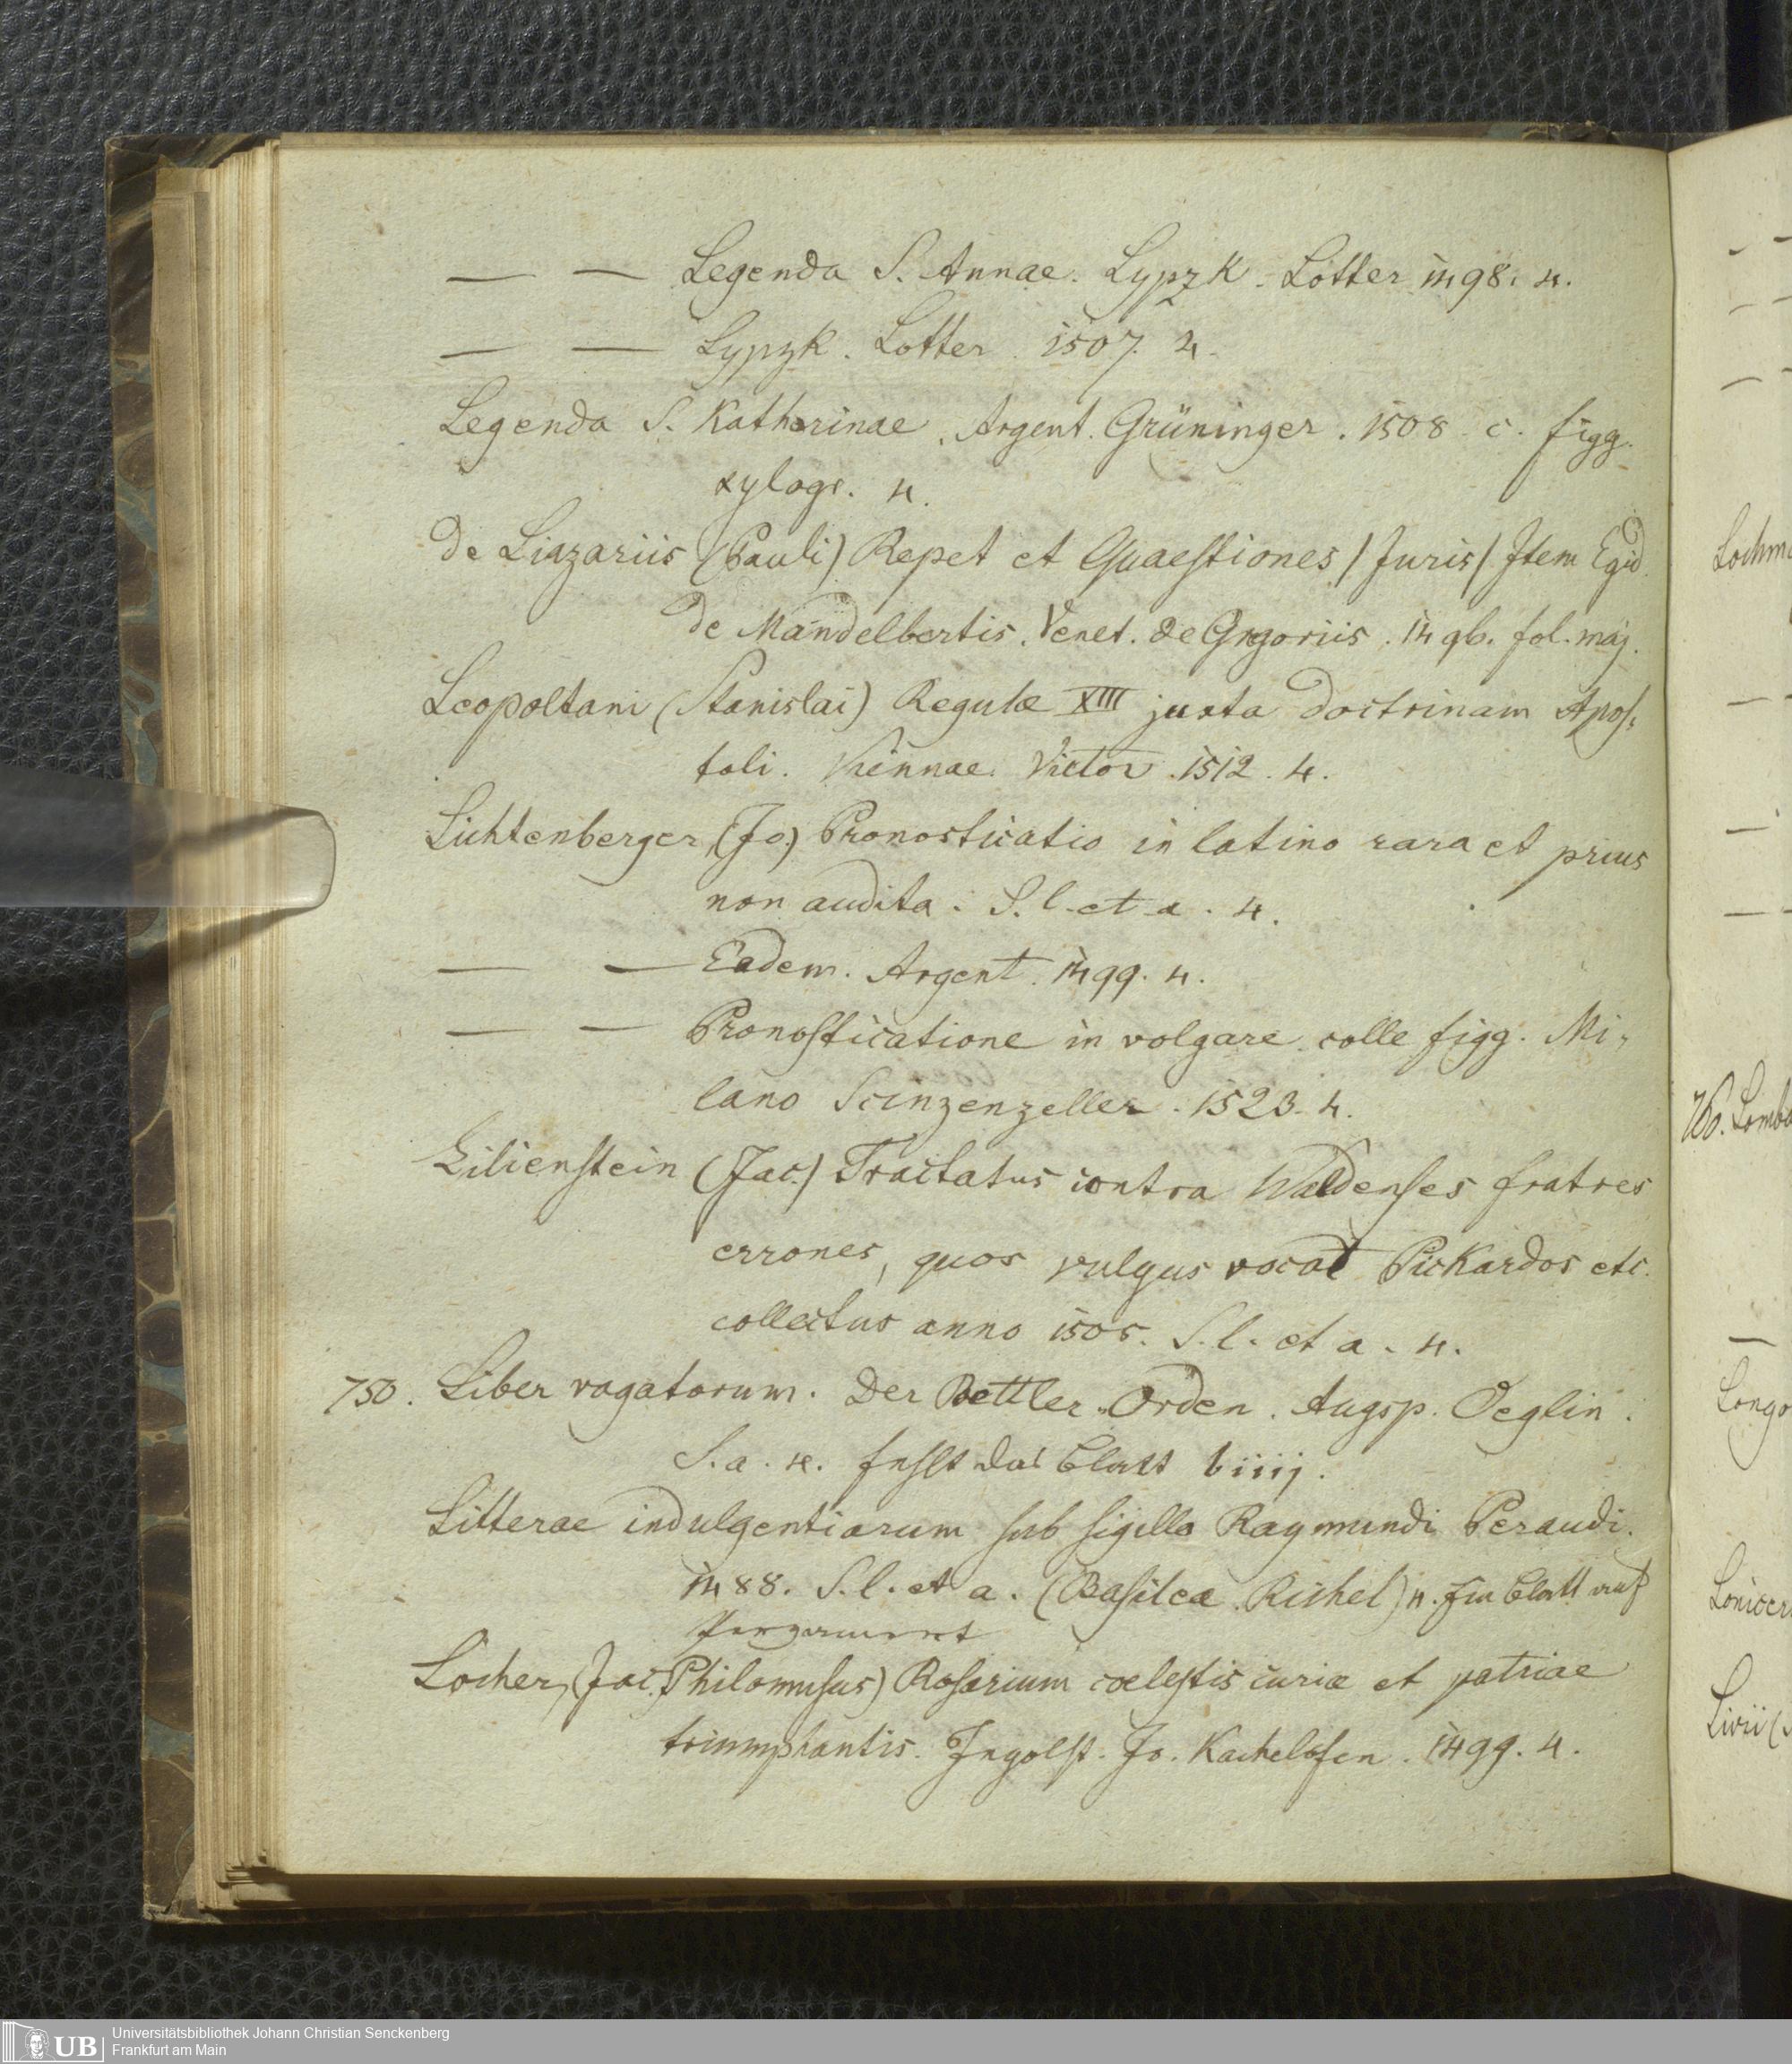 — — Legenda S. Annae. Lypzk. Lotter 1498. 4.
— — Lypzk. Lotter 1507. 4.
Legenda S. Katharinae. Argent. Grüninger. 1508. c. figg.
xylogr. 4.
de Liazariis (Pauli) Repet et Quaestiones /Juris/ Item Egid.
de Mandelbertis. Venet. de Grgoriis. 1496. fol. maj.
Leopoltani (Stanislai) Regulæ XIII juxta doctrinam Apos,
toli. Viennae. Victor. 1512. 4.
Lichtenberger, (Jo.) Pronosticatio in latino rara et prius
non audita. S. l. et a. 4.
— — Eadem. Argent. 1499. 4.
— — Pronosticatione in volgare colle figg. Mi,
lano Scinzenzeller. 1523. 4.
Lilienstein (Jac.) Tractatus contra Waldenses fratres
errones, quos vulgus vocat Pickardos etc.
collectus anno 1505. S. l. et a. 4.
750. Liber vagatorum. Der Bettler Orden. Augsp. Oeglin.
S. a. 4. fehlt das Blatt biiij.
Litterae indulgentiarum sub sigillo Raymundi Peraudi.
1488. S. l. et a. (Basileæ Richel) 4. Ein Blatt auf
Pergament
Locher, (Jac. Philomusus) Rosarium coelestis curiæ et patriae
triumphantis. Ingolst. Jo. Kachelofen. 1499. 4.
Lochm
760. Lomb
Longo
Lonicer
Livii (
Universitätsbibliothek Johann Christian Senckenberg
Frankfurt am Main
UB